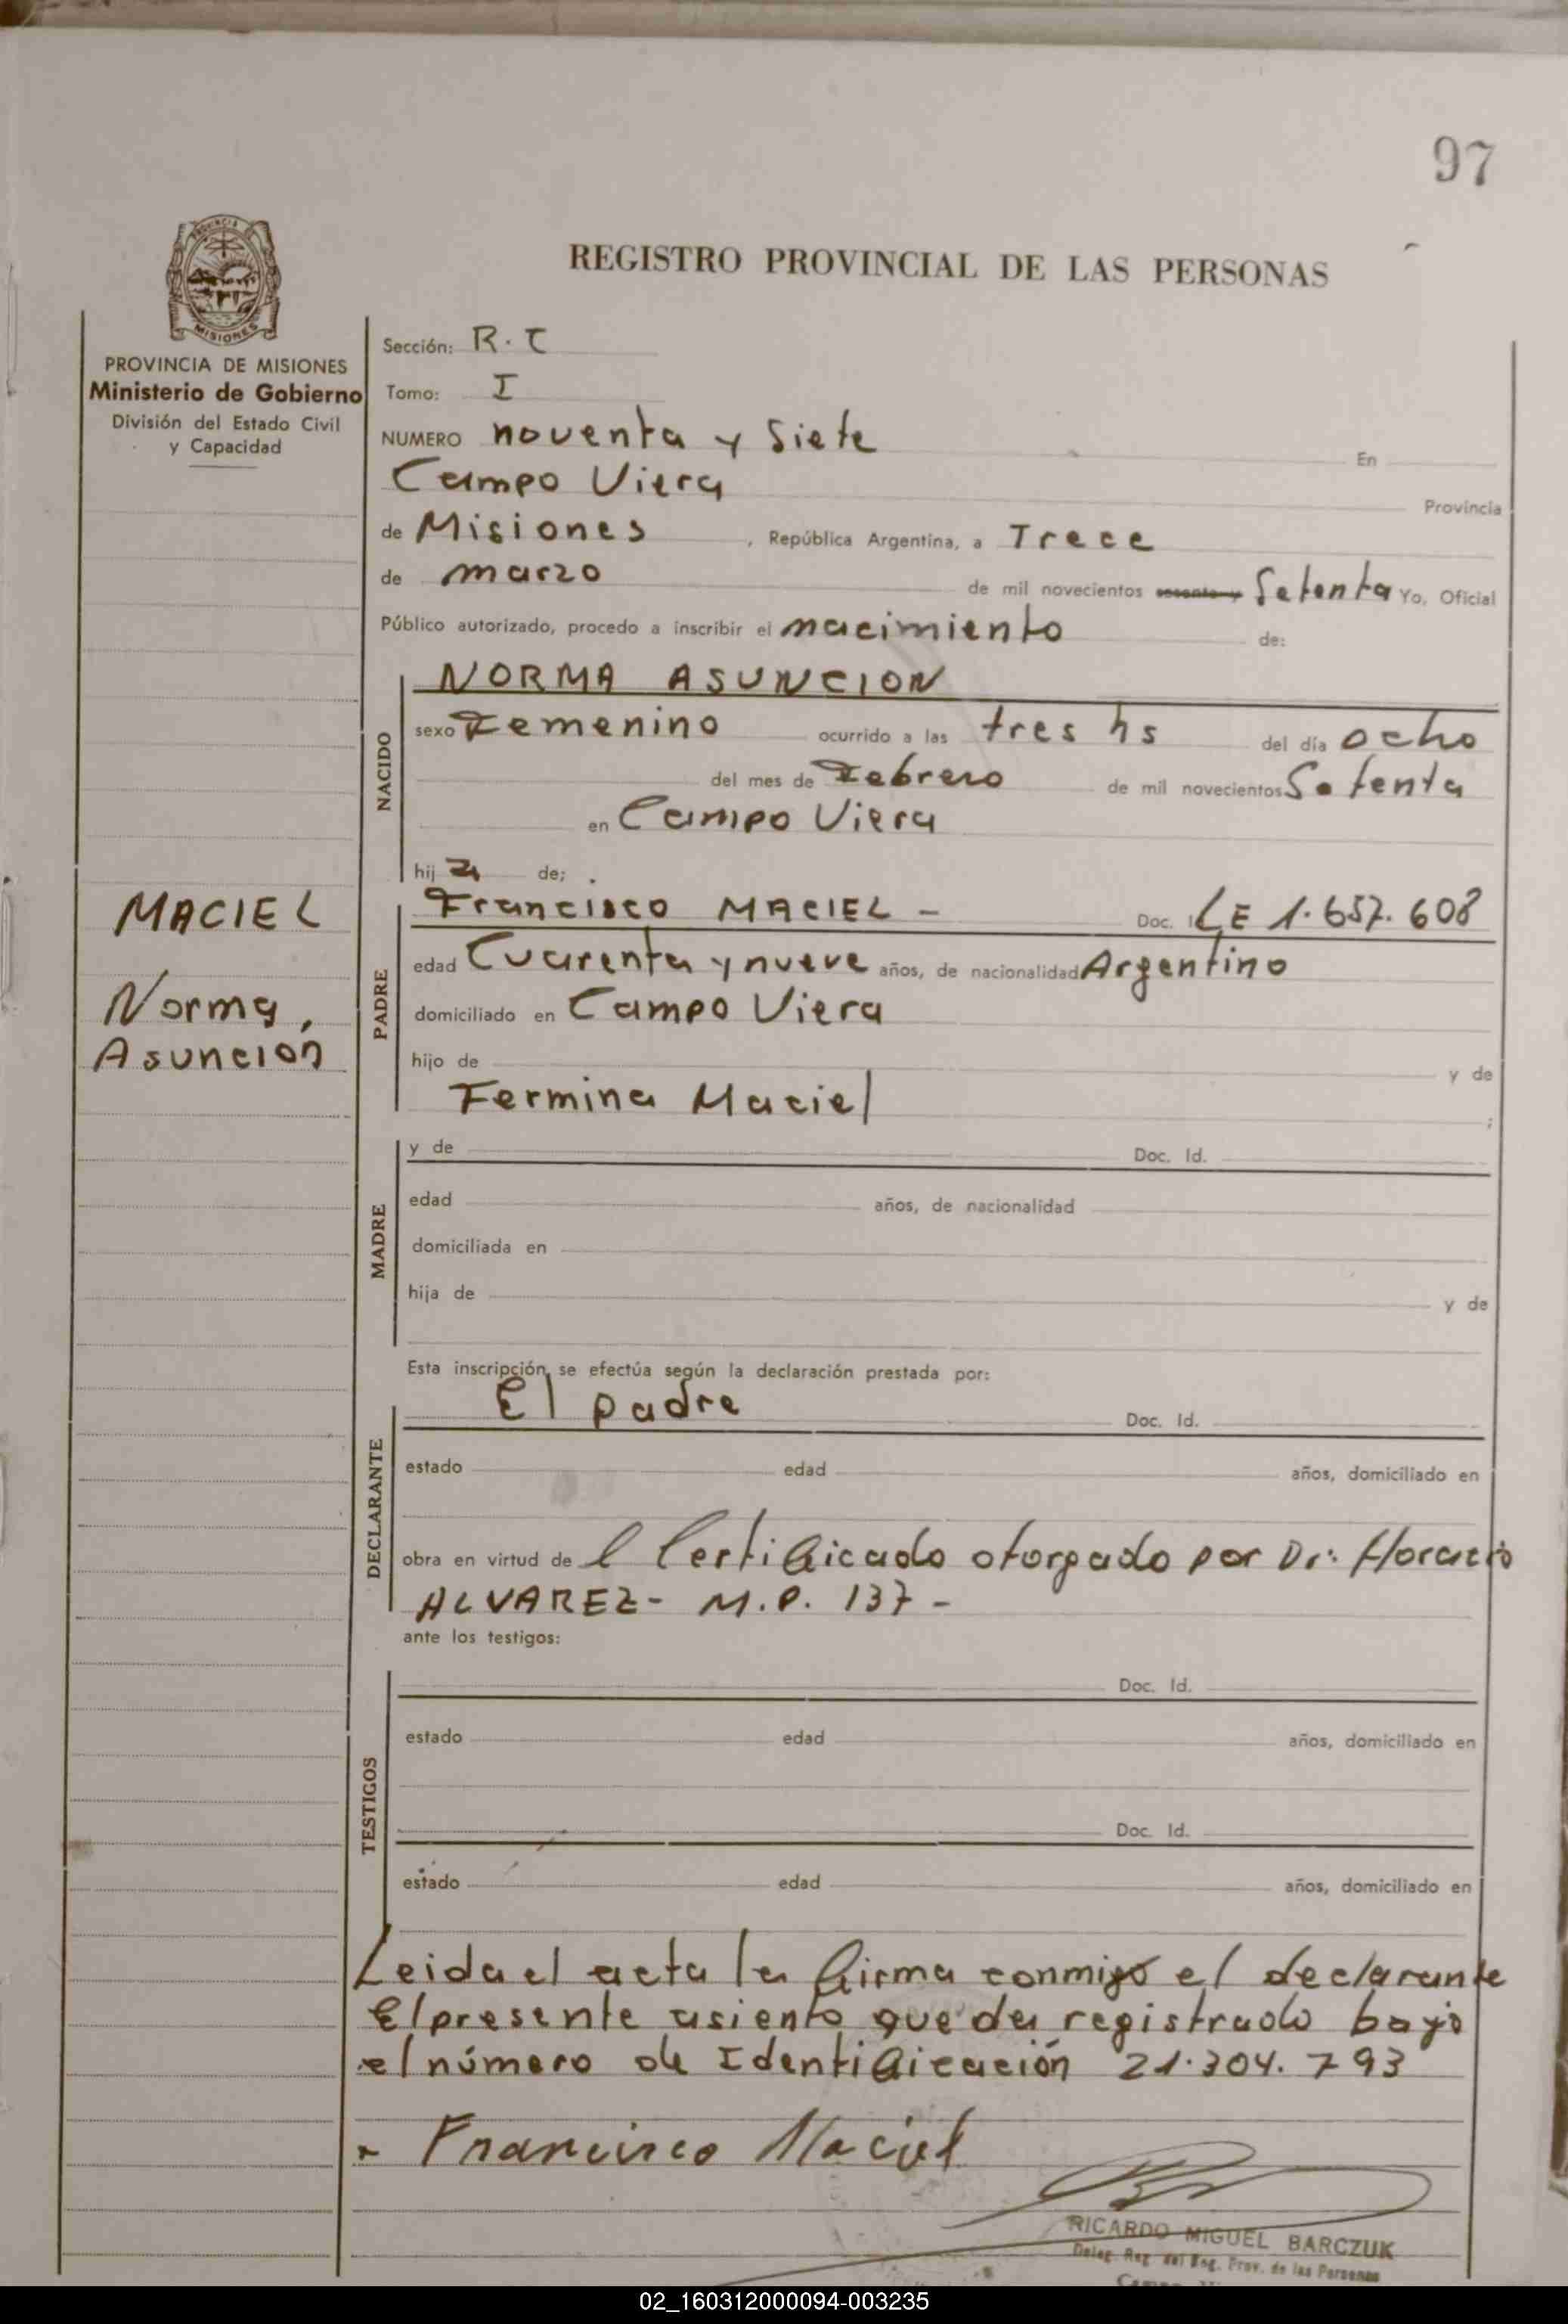 97
REGISTRO PROVINCIAL DE LAS PERSONAS
PROVINCIA DE MISIONES
Ministerio de Gobierno
División del Estado Civil
y Capacidad
Sección: R.C
Tomo: I
NUMERO noventa y Siete En
Campo Viera Provincia
de Misiones, República Argentina, a Trece
de marzo de mil novecientos sesenta y Setenta Yo, Oficial
Público autorizado, procedo a inscribir el nacimiento de:
NACIDO
NORMA ASUNCION
sexo Femenino ocurrido a las tres hs del día ocho
del mes de Febrero de mil novecientos Setenta
en Campo Viera
hija de:
MACIEL
Norma,
Asunción
PADRE
Francisco MACIEL - Doc. LE 1.657.608
edad Cuarenta y nueve años, de nacionalidad Argentino
domiciliado en Campo Viera
hijo de y de
Fermina Maciel ;
MADRE
y de Doc. Id.
edad años, de nacionalidad
domiciliada en
hija de y de
Esta inscripción se efectúa según la declaración prestada por:
DECLARANTE
El padre Doc. Id.
estado edad años, domiciliado en
obra en virtud de l Certificado otorgado por Dr: Horacio
ALVAREZ- M.P. 137 -
ante los testigos:
TESTIGOS
Doc. Id.
estado edad años, domiciliado en
Doc. Id.
estado edad años, domiciliado en
Leida el acta la firma conmigo el declarante
El presente asiento queda registrado bajo
el número de Identificación 21.304.793
Francisco Maciel
RICARDO MIGUEL BARCZUK
Deleg. Reg. del Reg. Prov. de las Personas
02_160312000094-003235